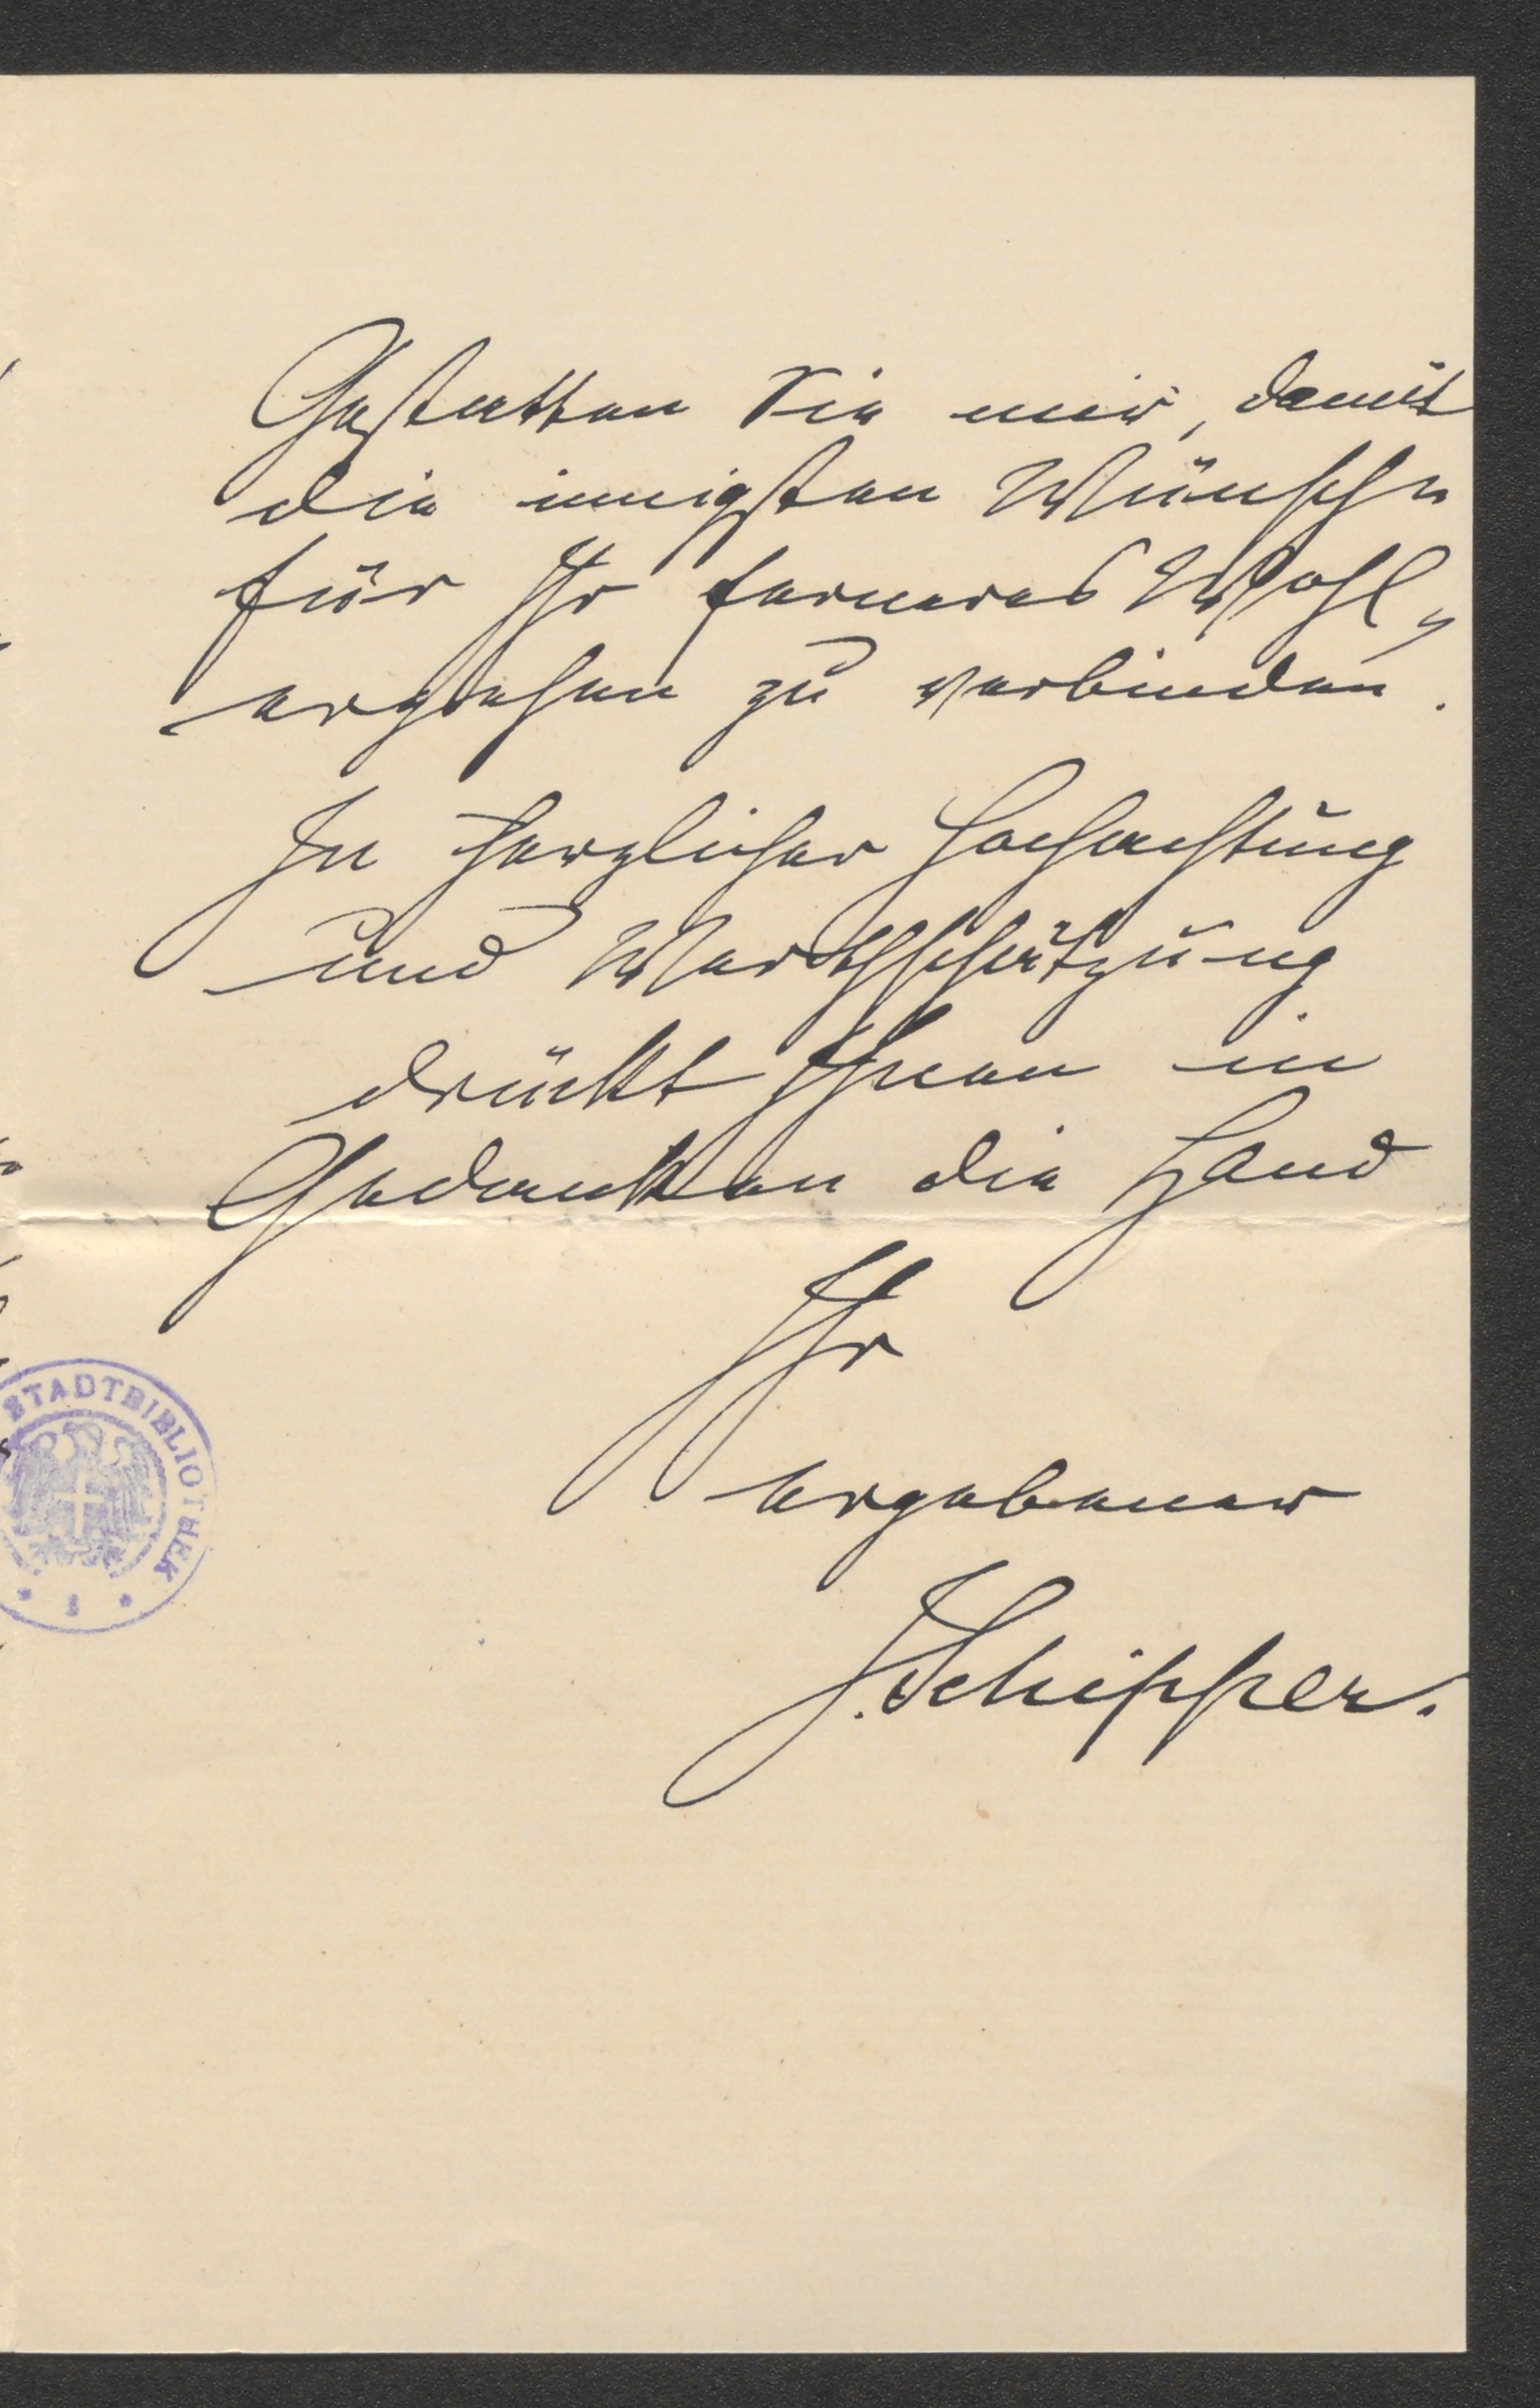 Gestatten Sie mir, damit
die innigsten Wünsche
für Ihr ferneres Wohl-
ergehen zu verbinden.
In herzlicher Hochachtung
und Werthschätzung
drückt Ihnen in
Gedanken die Hand
Ihr
ergebener
J. Schipper.
STADTBIBLIOTHEK